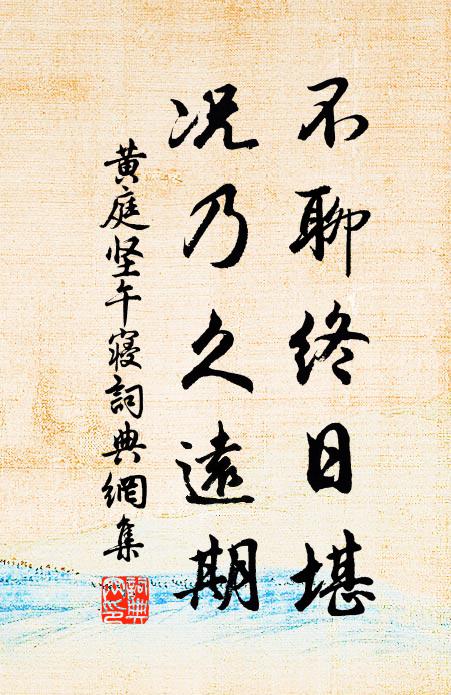 不聊终日堪
况乃久遠期
黄庭坚午寝詞典網集